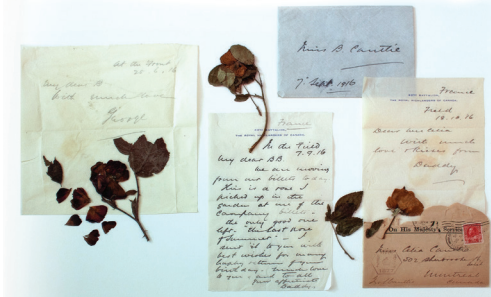 At the Front
My dear B
With much love
Miss B Cantlie
7 Sept 1916
France
42ND BATTALION,
THE ROYAL HIGHLANDERS OF CANADA.
In the Field
7.9.16
My dear BB
We are moving
from our billets today
This is a rose I
picked up in the
garden at one of the
Company billets -
the only good one
left. The last Rose
of Summer - I
send it to you with
best wishes for many
happy returns of your
birthday. Much love
to you, and to all
Daddy.
France
42ND BATTALION,
THE ROYAL HIGHLANDERS OF CANADA.
Field
.10.16
Dear Celia
With much
love & kisses from
Daddy
On His Majesty's Service.
Miss Celia Cantlie
Montreal